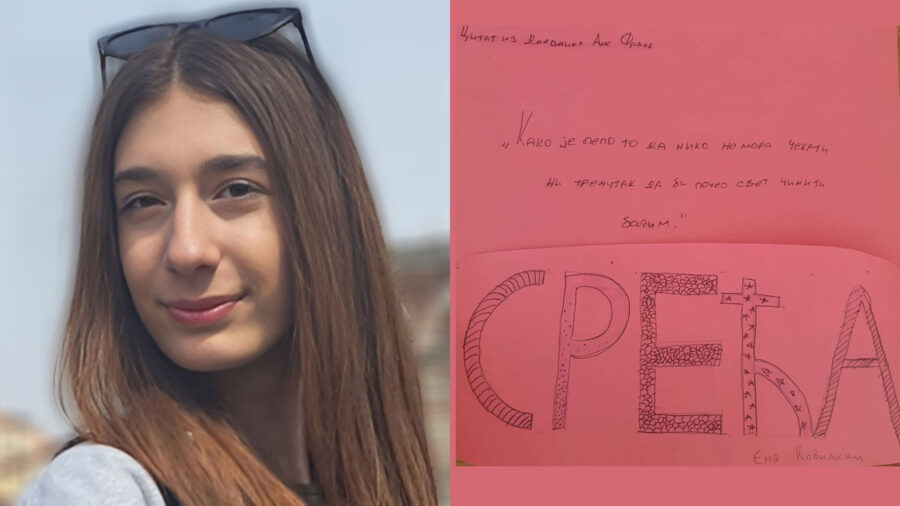 Цитат из дневника Ане Франк
„Како је лепо то да нико не мора чекати
ни тренутак да би почео свет чинити
бољим.“
СРЕЋА
Ема